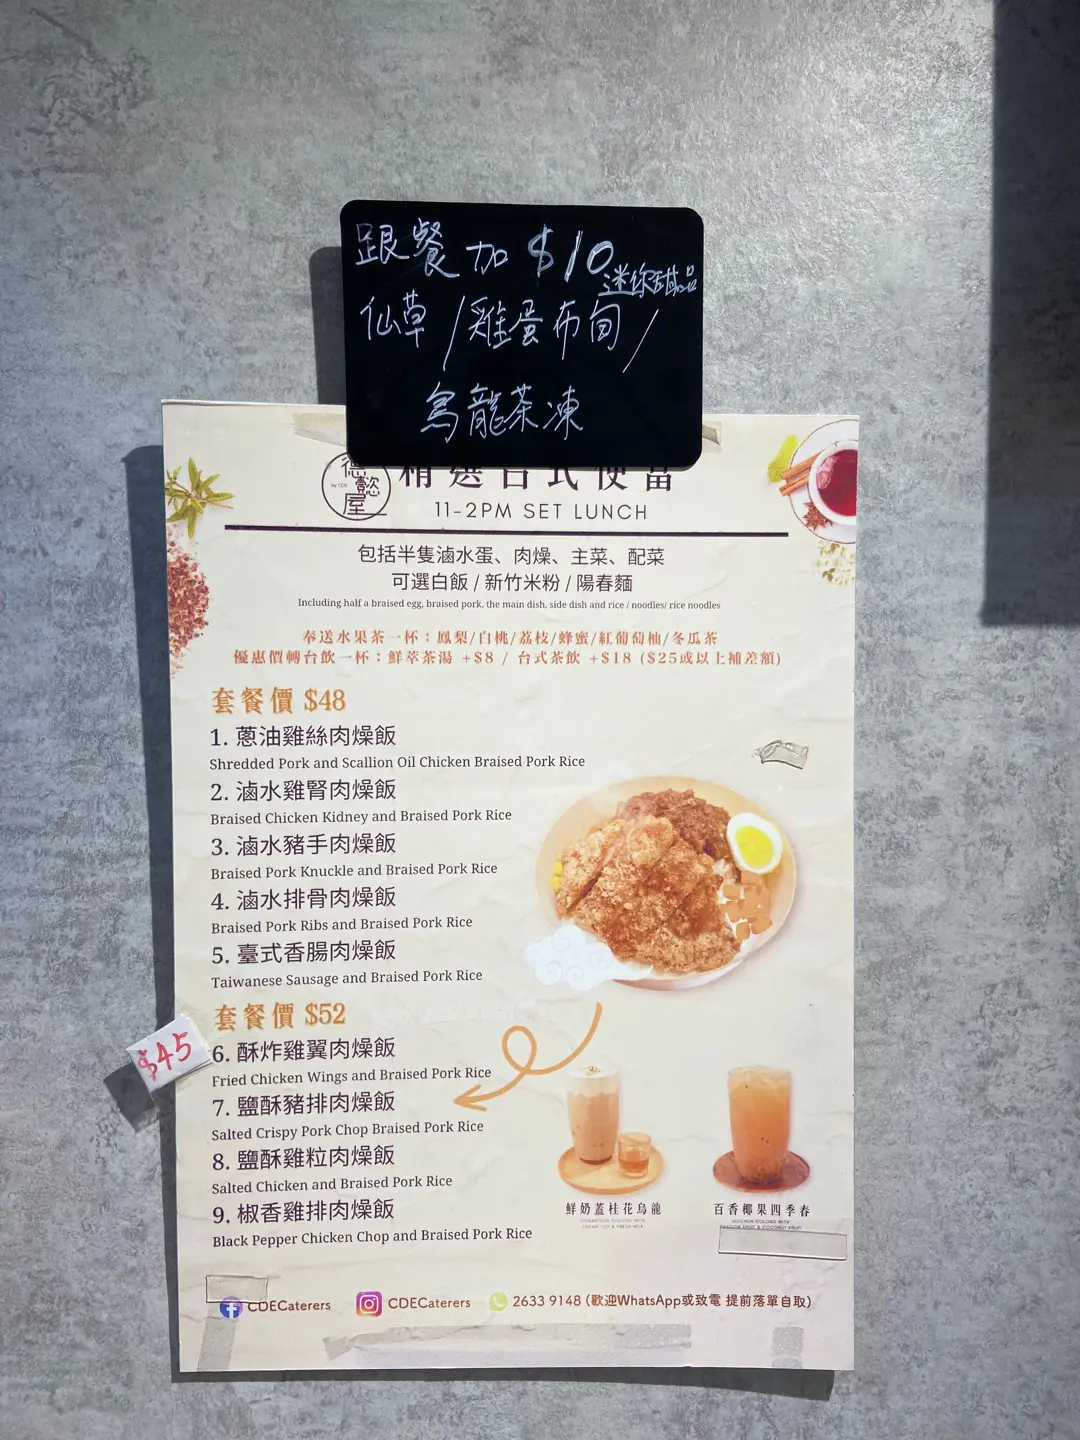 跟餐加 $10 迷你甜品
仙草 / 雞蛋布甸 /
烏龍茶凍
德懿屋
by CDE
精選台式便當
11-2PM SET LUNCH
包括半隻滷水蛋、肉燥、主菜、配菜
可選白飯 / 新竹米粉 / 陽春麵
Including half a braised egg, braised pork, the main dish, side dish and rice / noodles/ rice noodles
奉送水果茶一杯：鳳梨/白桃/荔枝/蜂蜜/紅葡萄柚/冬瓜茶
優惠價轉台飲一杯：鮮萃茶湯 +$8 / 台式茶飲 +$18 ($25或以上補差額)
套餐價 $48
1. 蔥油雞絲肉燥飯
Shredded Pork and Scallion Oil Chicken Braised Pork Rice
2. 滷水雞腎肉燥飯
Braised Chicken Kidney and Braised Pork Rice
3. 滷水豬手肉燥飯
Braised Pork Knuckle and Braised Pork Rice
4. 滷水排骨肉燥飯
Braised Pork Ribs and Braised Pork Rice
5. 臺式香腸肉燥飯
Taiwanese Sausage and Braised Pork Rice
套餐價 $52
$45
6. 酥炸雞翼肉燥飯
Fried Chicken Wings and Braised Pork Rice
7. 鹽酥豬排肉燥飯
Salted Crispy Pork Chop Braised Pork Rice
8. 鹽酥雞粒肉燥飯
Salted Chicken and Braised Pork Rice
9. 椒香雞排肉燥飯
Black Pepper Chicken Chop and Braised Pork Rice
鮮奶蓋桂花烏龍
OSMANTHUS OOLONG WITH
CREAM TOP & FRESH MILK
百香椰果四季春
CDECaterers
CDECaterers
2633 9148 (歡迎WhatsApp或致電 提前落單自取)